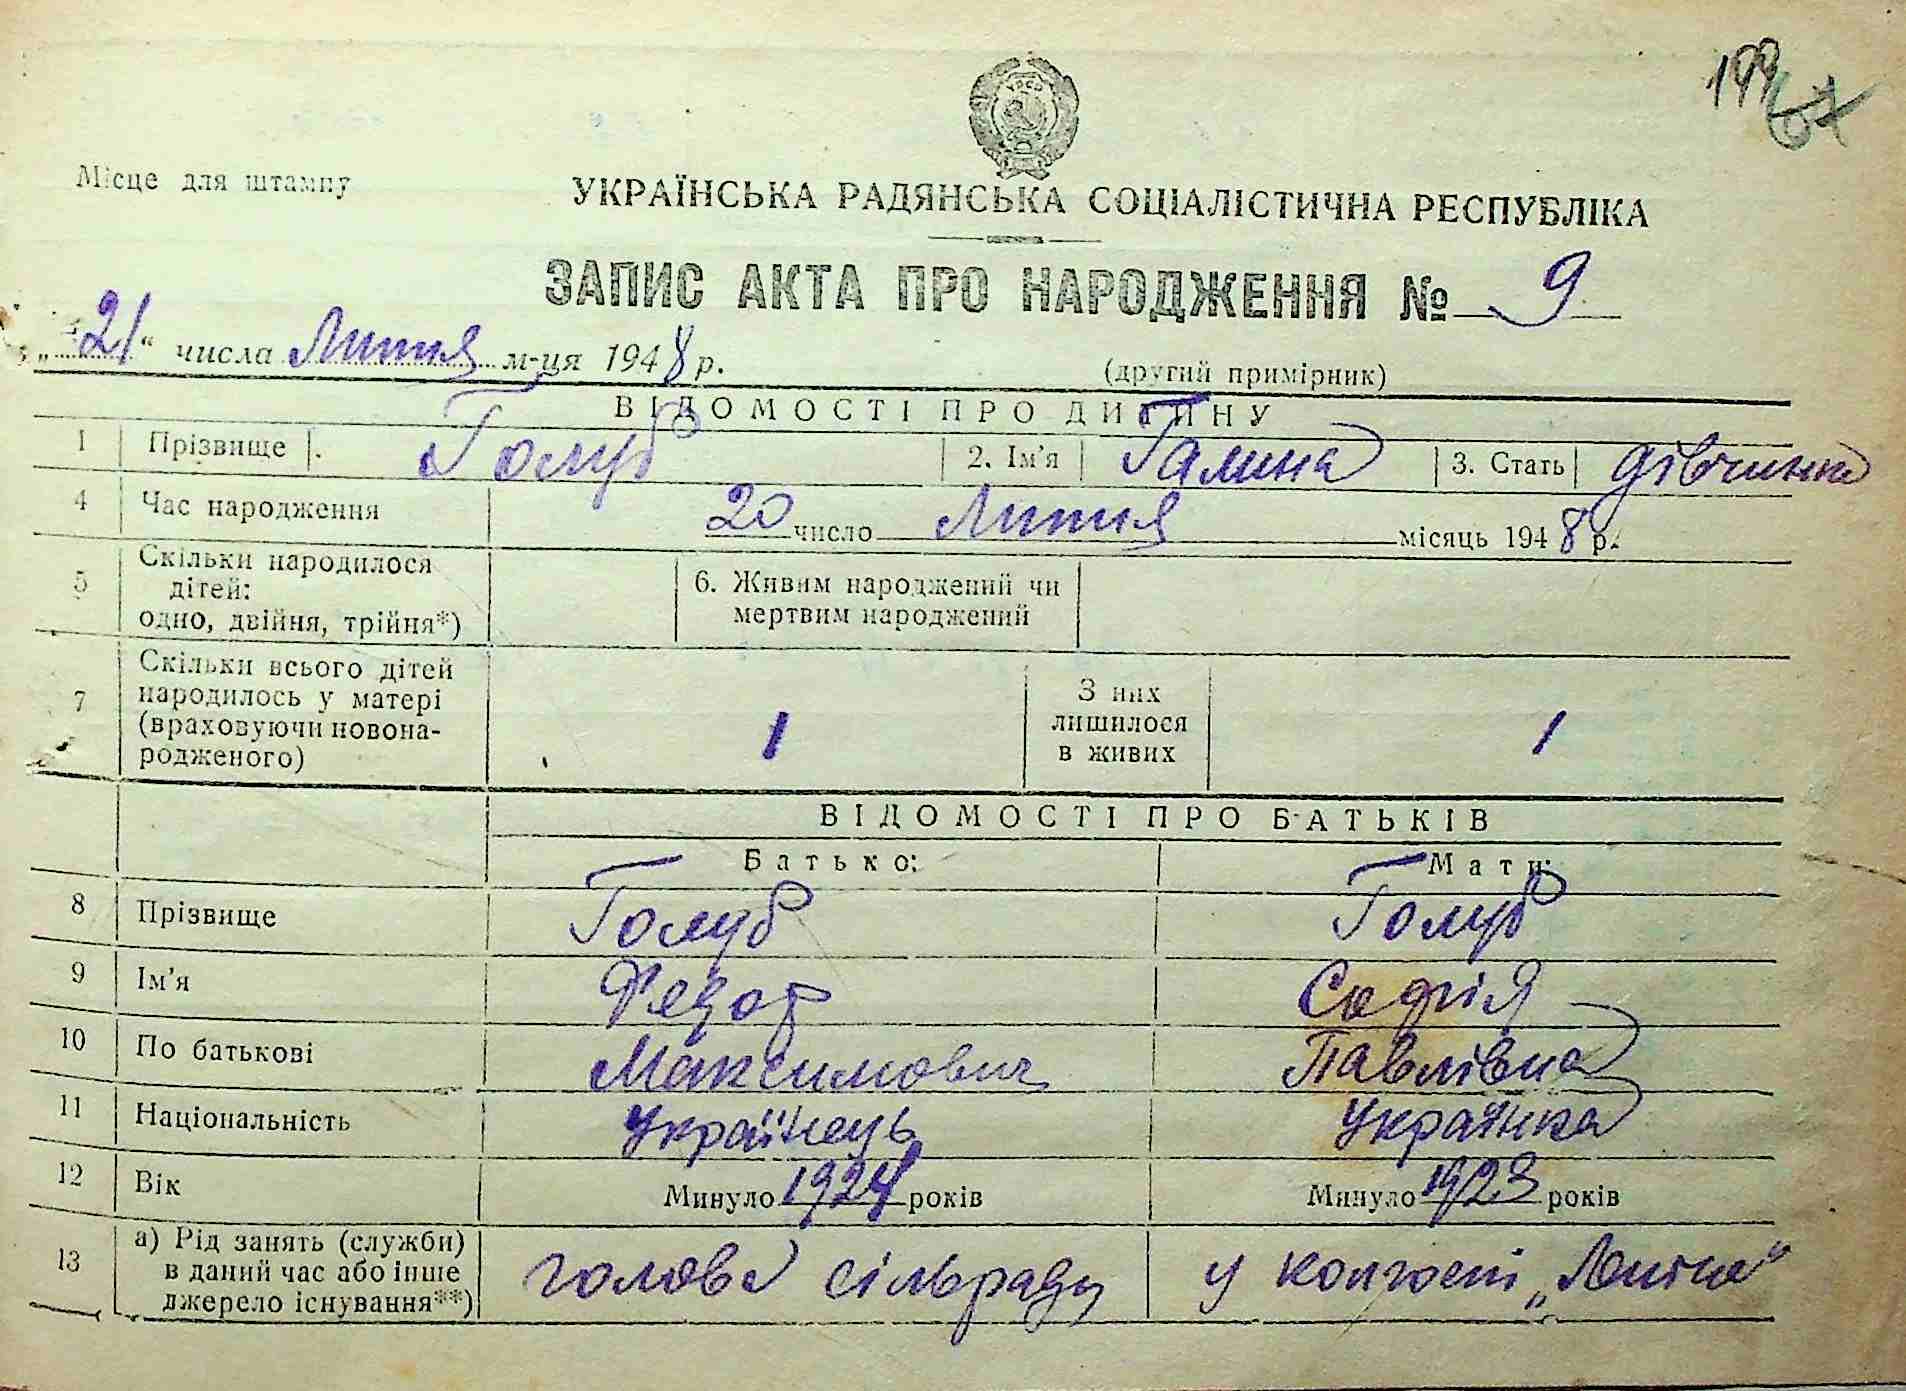 УРСР
Місце для штампу
УКРАЇНСЬКА РАДЯНСЬКА СОЦІАЛІСТИЧНА РЕСПУБЛІКА
ЗАПИС АКТА ПРО НАРОДЖЕННЯ № 9
„21“ числа Липня м-ця 1948 р.
(другий примірник)
ВІДОМОСТІ ПРО ДИТИНУ
1 Прізвище Голуб 2. Ім'я Галина 3. Стать дівчинка
4 Час народження 20 число Липня місяць 1948 р.
5 Скільки народилося
дітей:
одно, двійня, трійня*)
6. Живим народжений чи
мертвим народжений
7 Скільки всього дітей
народилось у матері
(враховуючи новона-
родженого)
1
З них
лишилося
в живих
1
ВІДОМОСТІ ПРО БАТЬКІВ
Батько: Мати:
8 Прізвище Голуб Голуб
9 Ім'я Федор Софія
10 По батькові Максимович Павлівна
11 Національність Українець Українка
12 Вік Минуло 1924 років Минуло 1923 років
13 а) Рід занять (служби)
в даний час або інше
джерело існування**)
голова сільради у колгоспі „Леніна"